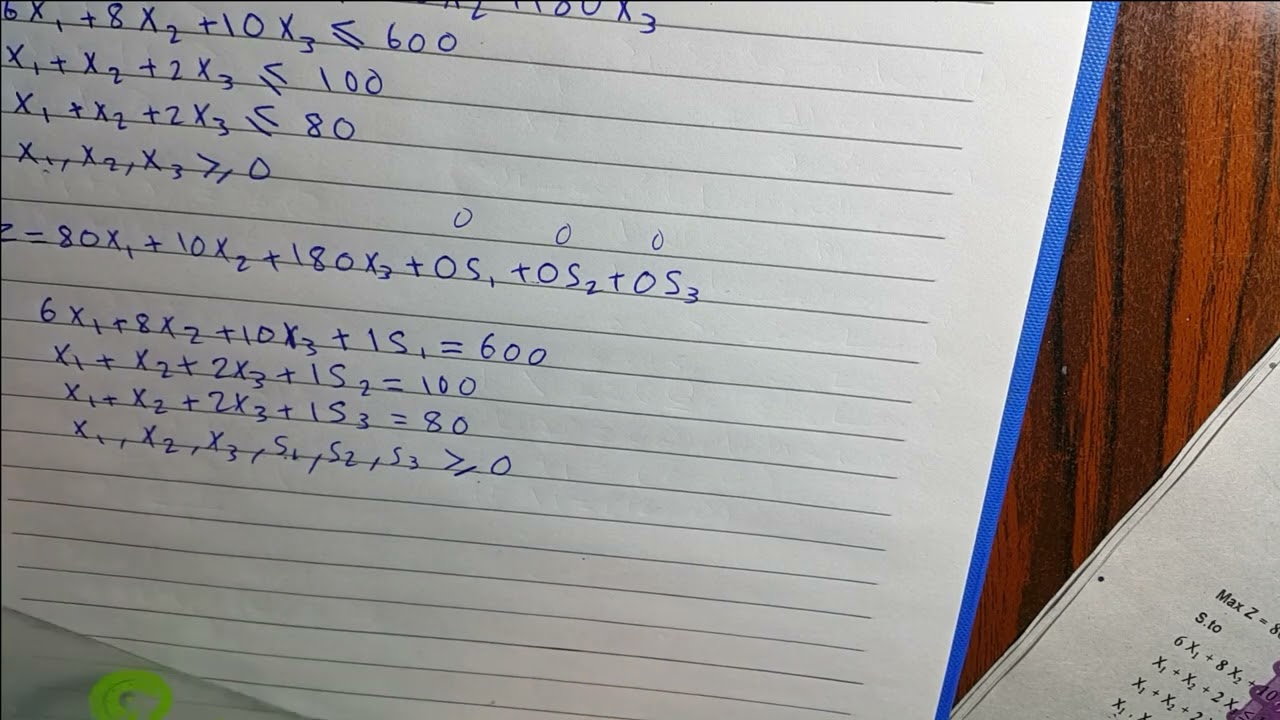 6X₁ + 8X₂ + 10X₃ ≤ 600
X₁ + X₂ + 2X₃ ≤ 100
X₁ + X₂ + 2X₃ ≤ 80
X₁, X₂, X₃ ≥ 0
0 0 0
Z = 80X₁ + 10X₂ + 180X₃ + 0S₁ + 0S₂ + 0S₃
6X₁ + 8X₂ + 10X₃ + 1S₁ = 600
X₁ + X₂ + 2X₃ + 1S₂ = 100
X₁ + X₂ + 2X₃ + 1S₃ = 80
X₁, X₂, X₃, S₁, S₂, S₃ ≥ 0
Max Z = 8
S.to
6 X₁ + 8 X₂ + 10
X₁ + X₂ + 2 X
X₁ + X₂ + 2